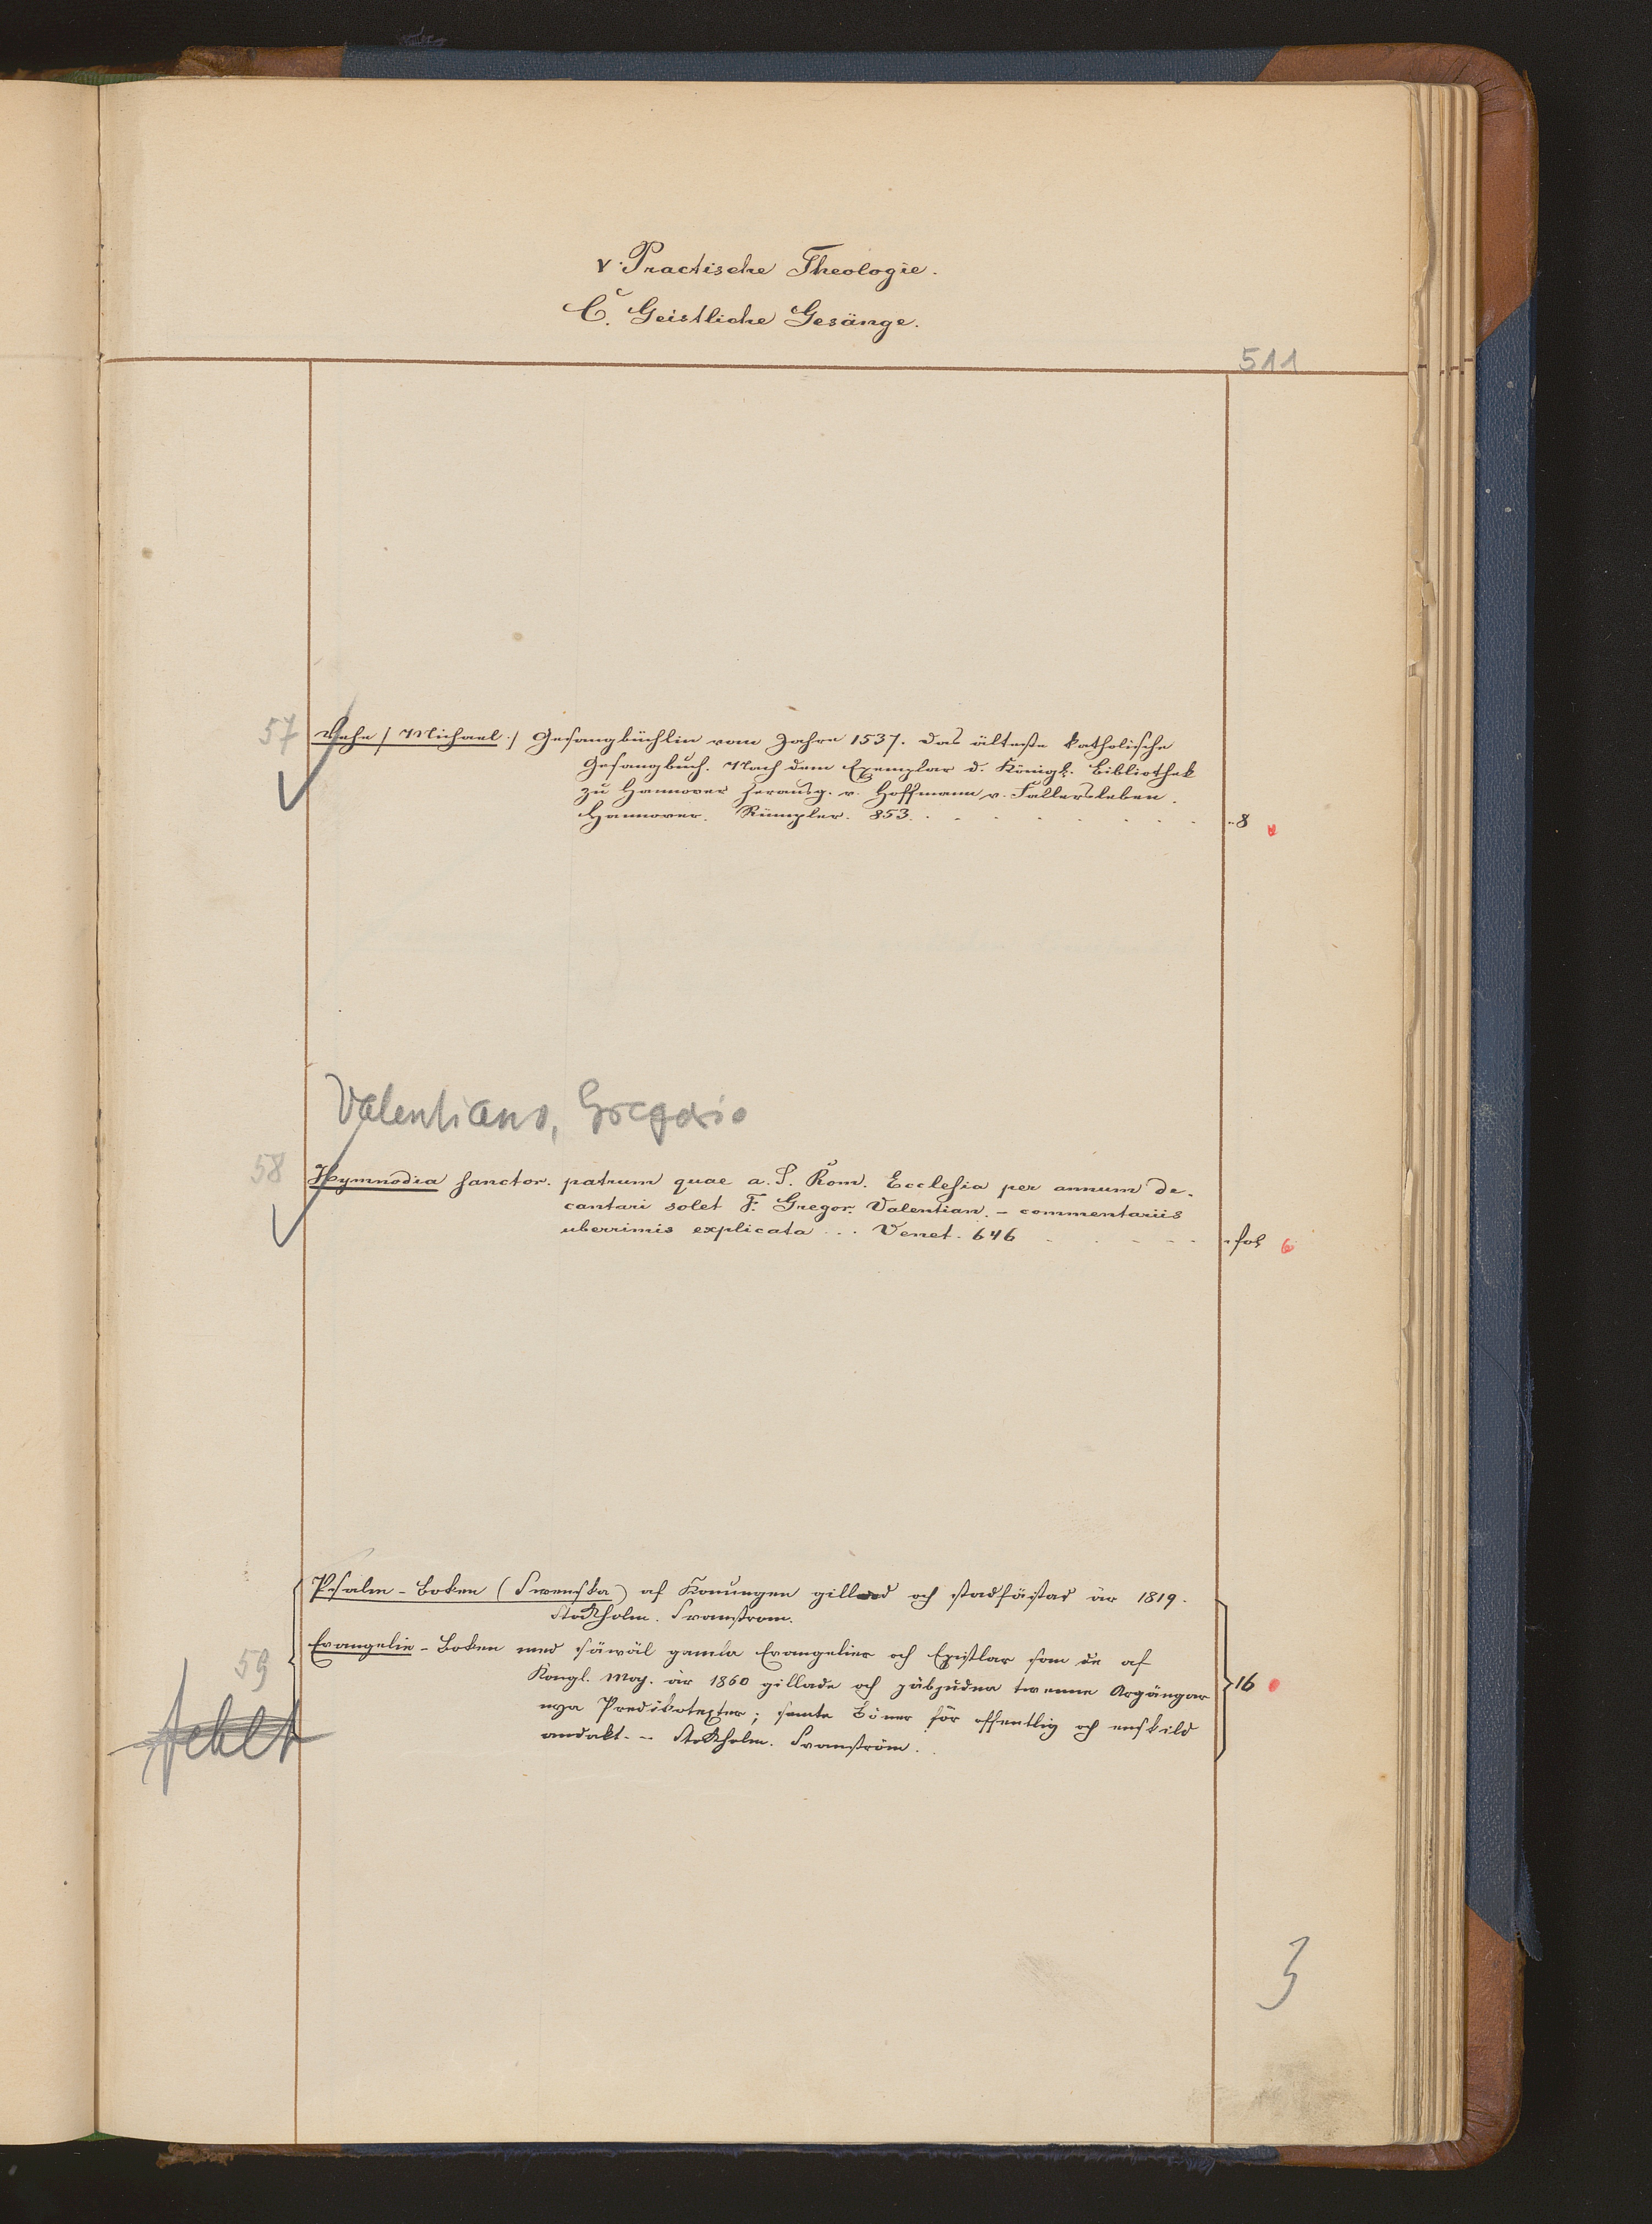 V. Practische Theologie.
C. Geistliche Gesänge.
511
57 Vehe /: Michael :/ Gesangbüchlin vom Jahre 1537. Das älteste katholische
Gesangbuch. Nach dem Exemplar d. Königl. Bibliothek
zu Hannover herausg. v. Hoffmann v. Fallersleben.
Hannover. Rümpler. 853. 8
Valentiano, Gregorio
58 Hymnodia sanctor. patrum quae a. S. Rom. Ecclesia per annum de-
cantari solet F. Gregor. Valentian. - commentariis
uberrimis explicata ... Venet. 646 fol 6
Psalm-Boken (Swenska) af Konungen gillad och stadfästad år 1819.
Stockholm. Svanstrom.
59 Evangelie-Boken med såwäl gamla Evangelier och Epistlar som de af
Kongl. Maj. år 1860 gillade och påbjudna twenne Årgångar
nya Predikotexter; samt Böner för offentlig och enskild 16
andakt. - Stockholm. Svanström.
fehlt
3